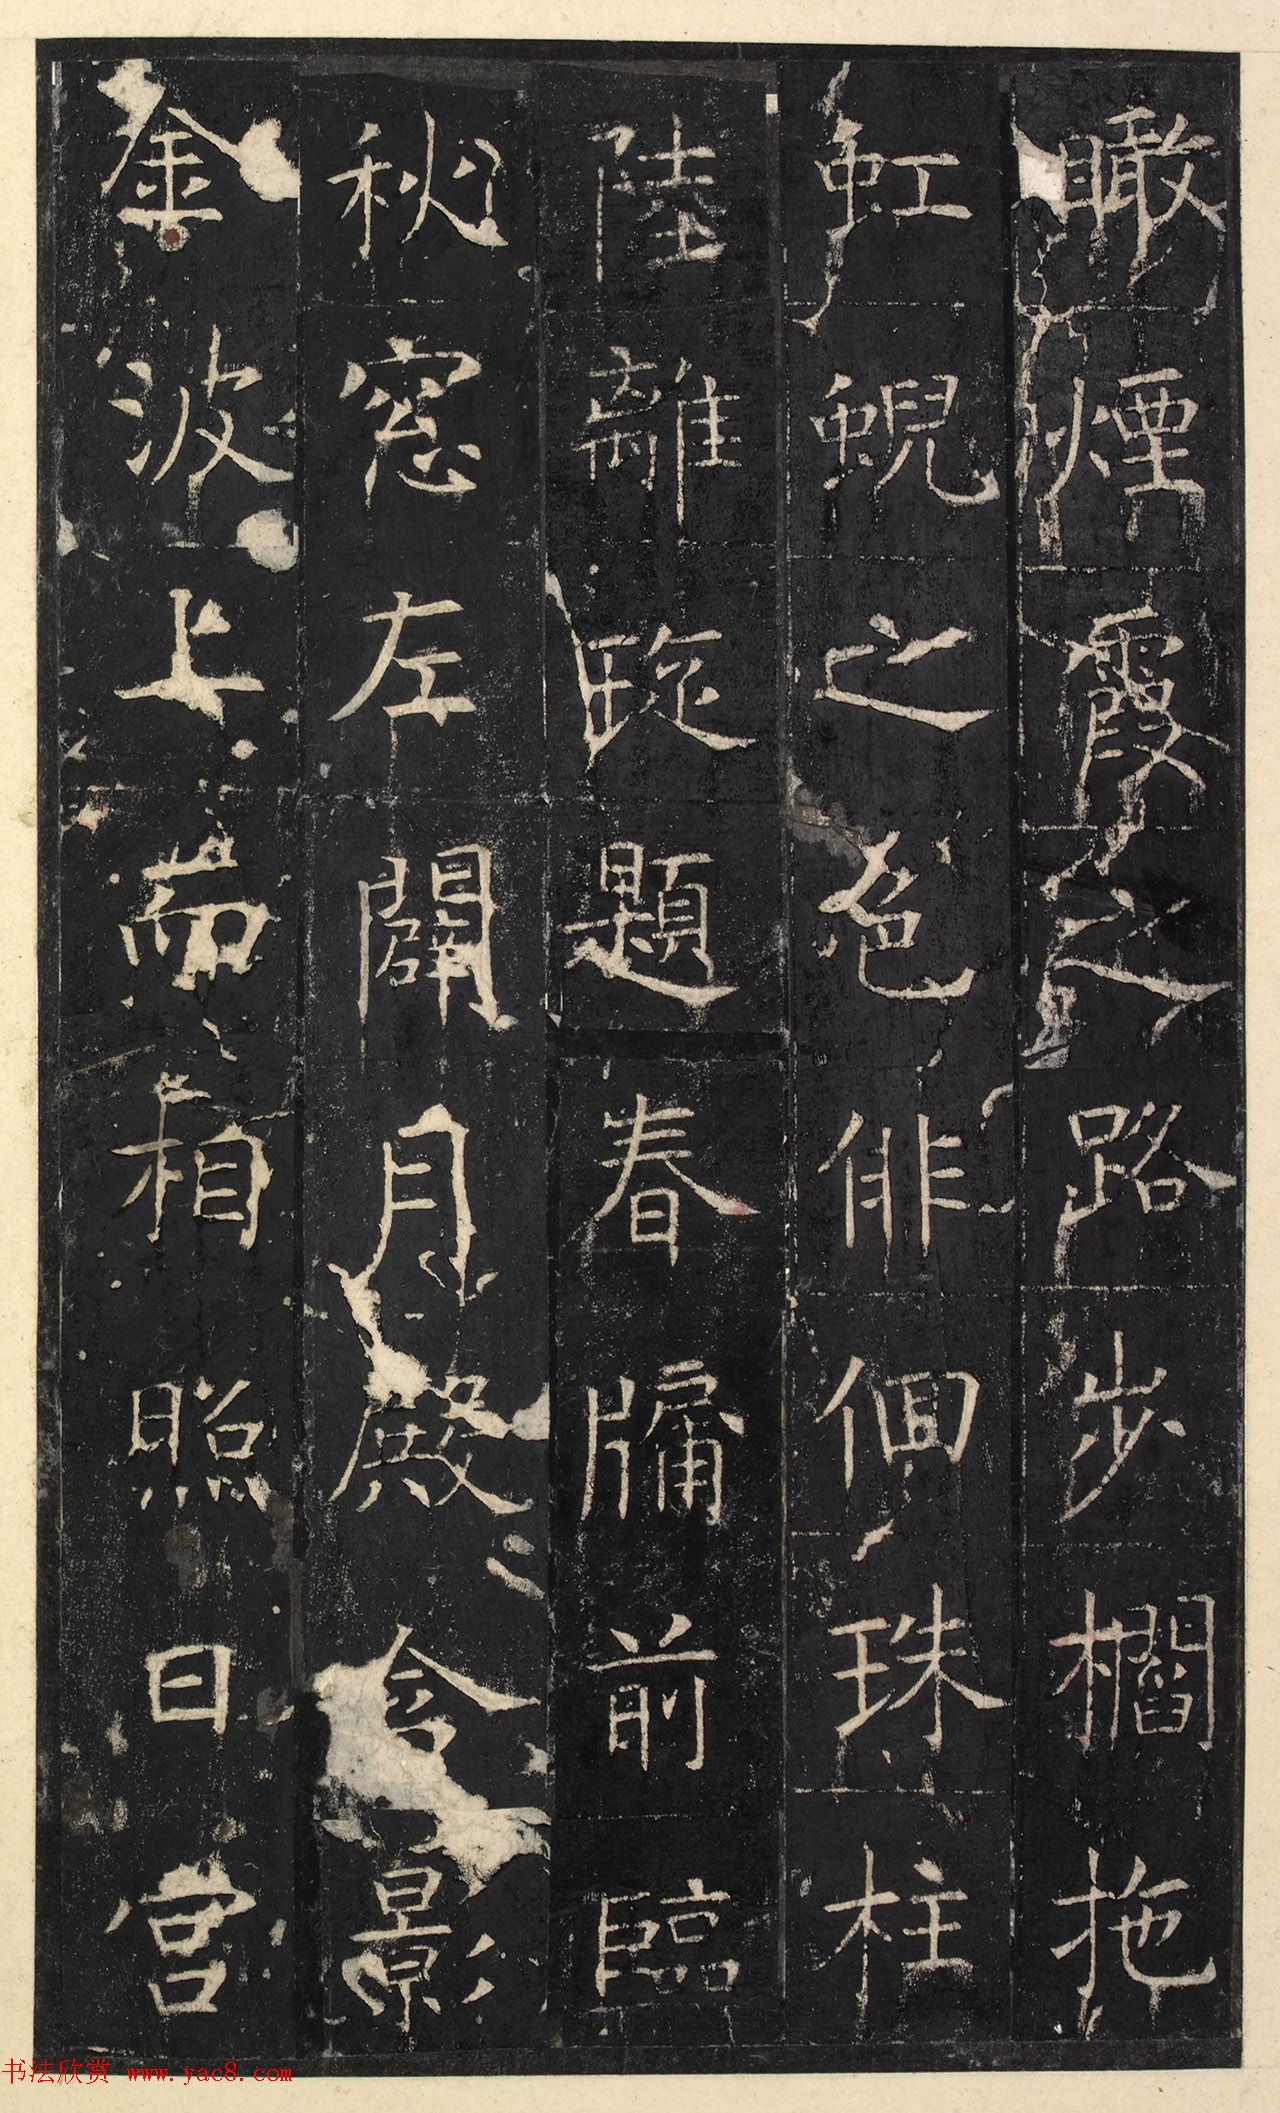 瞰煙霞之路步櫩拖
虹蜺之色俳佪珠柱
陸離琁題春牗前臨
秋窓左闢月殿含影
金波上而相照日宮
书法欣赏 www.yac8.com